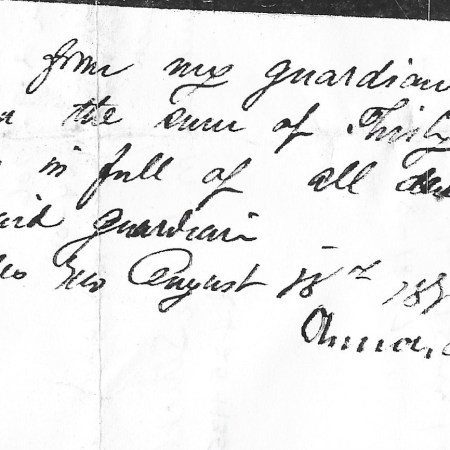 from my guardian
the sum of Thirty
in full of all
said guardian
August 18th 187
Anna